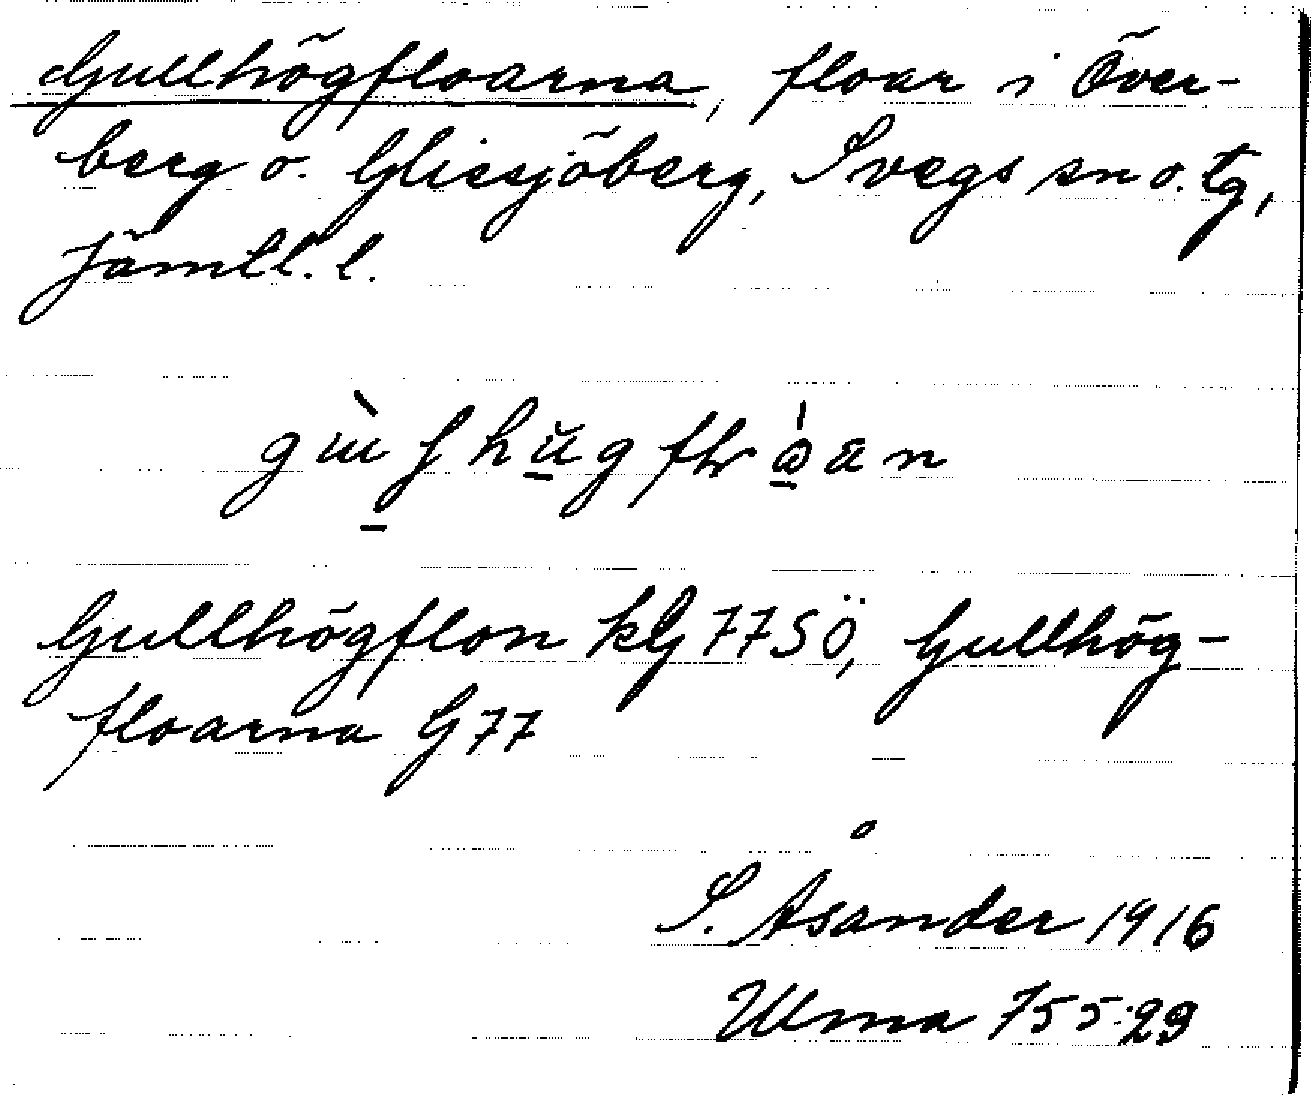 Gullhögfloarna, floar i Över-
berg o. Glissjöberg, Svegs sn o. tg,
Jämtl. l.
Gullhögflon kG 77 SÖ, Gullhög-
floarna G 77
S. Åsander 1916
Ulma 755:29